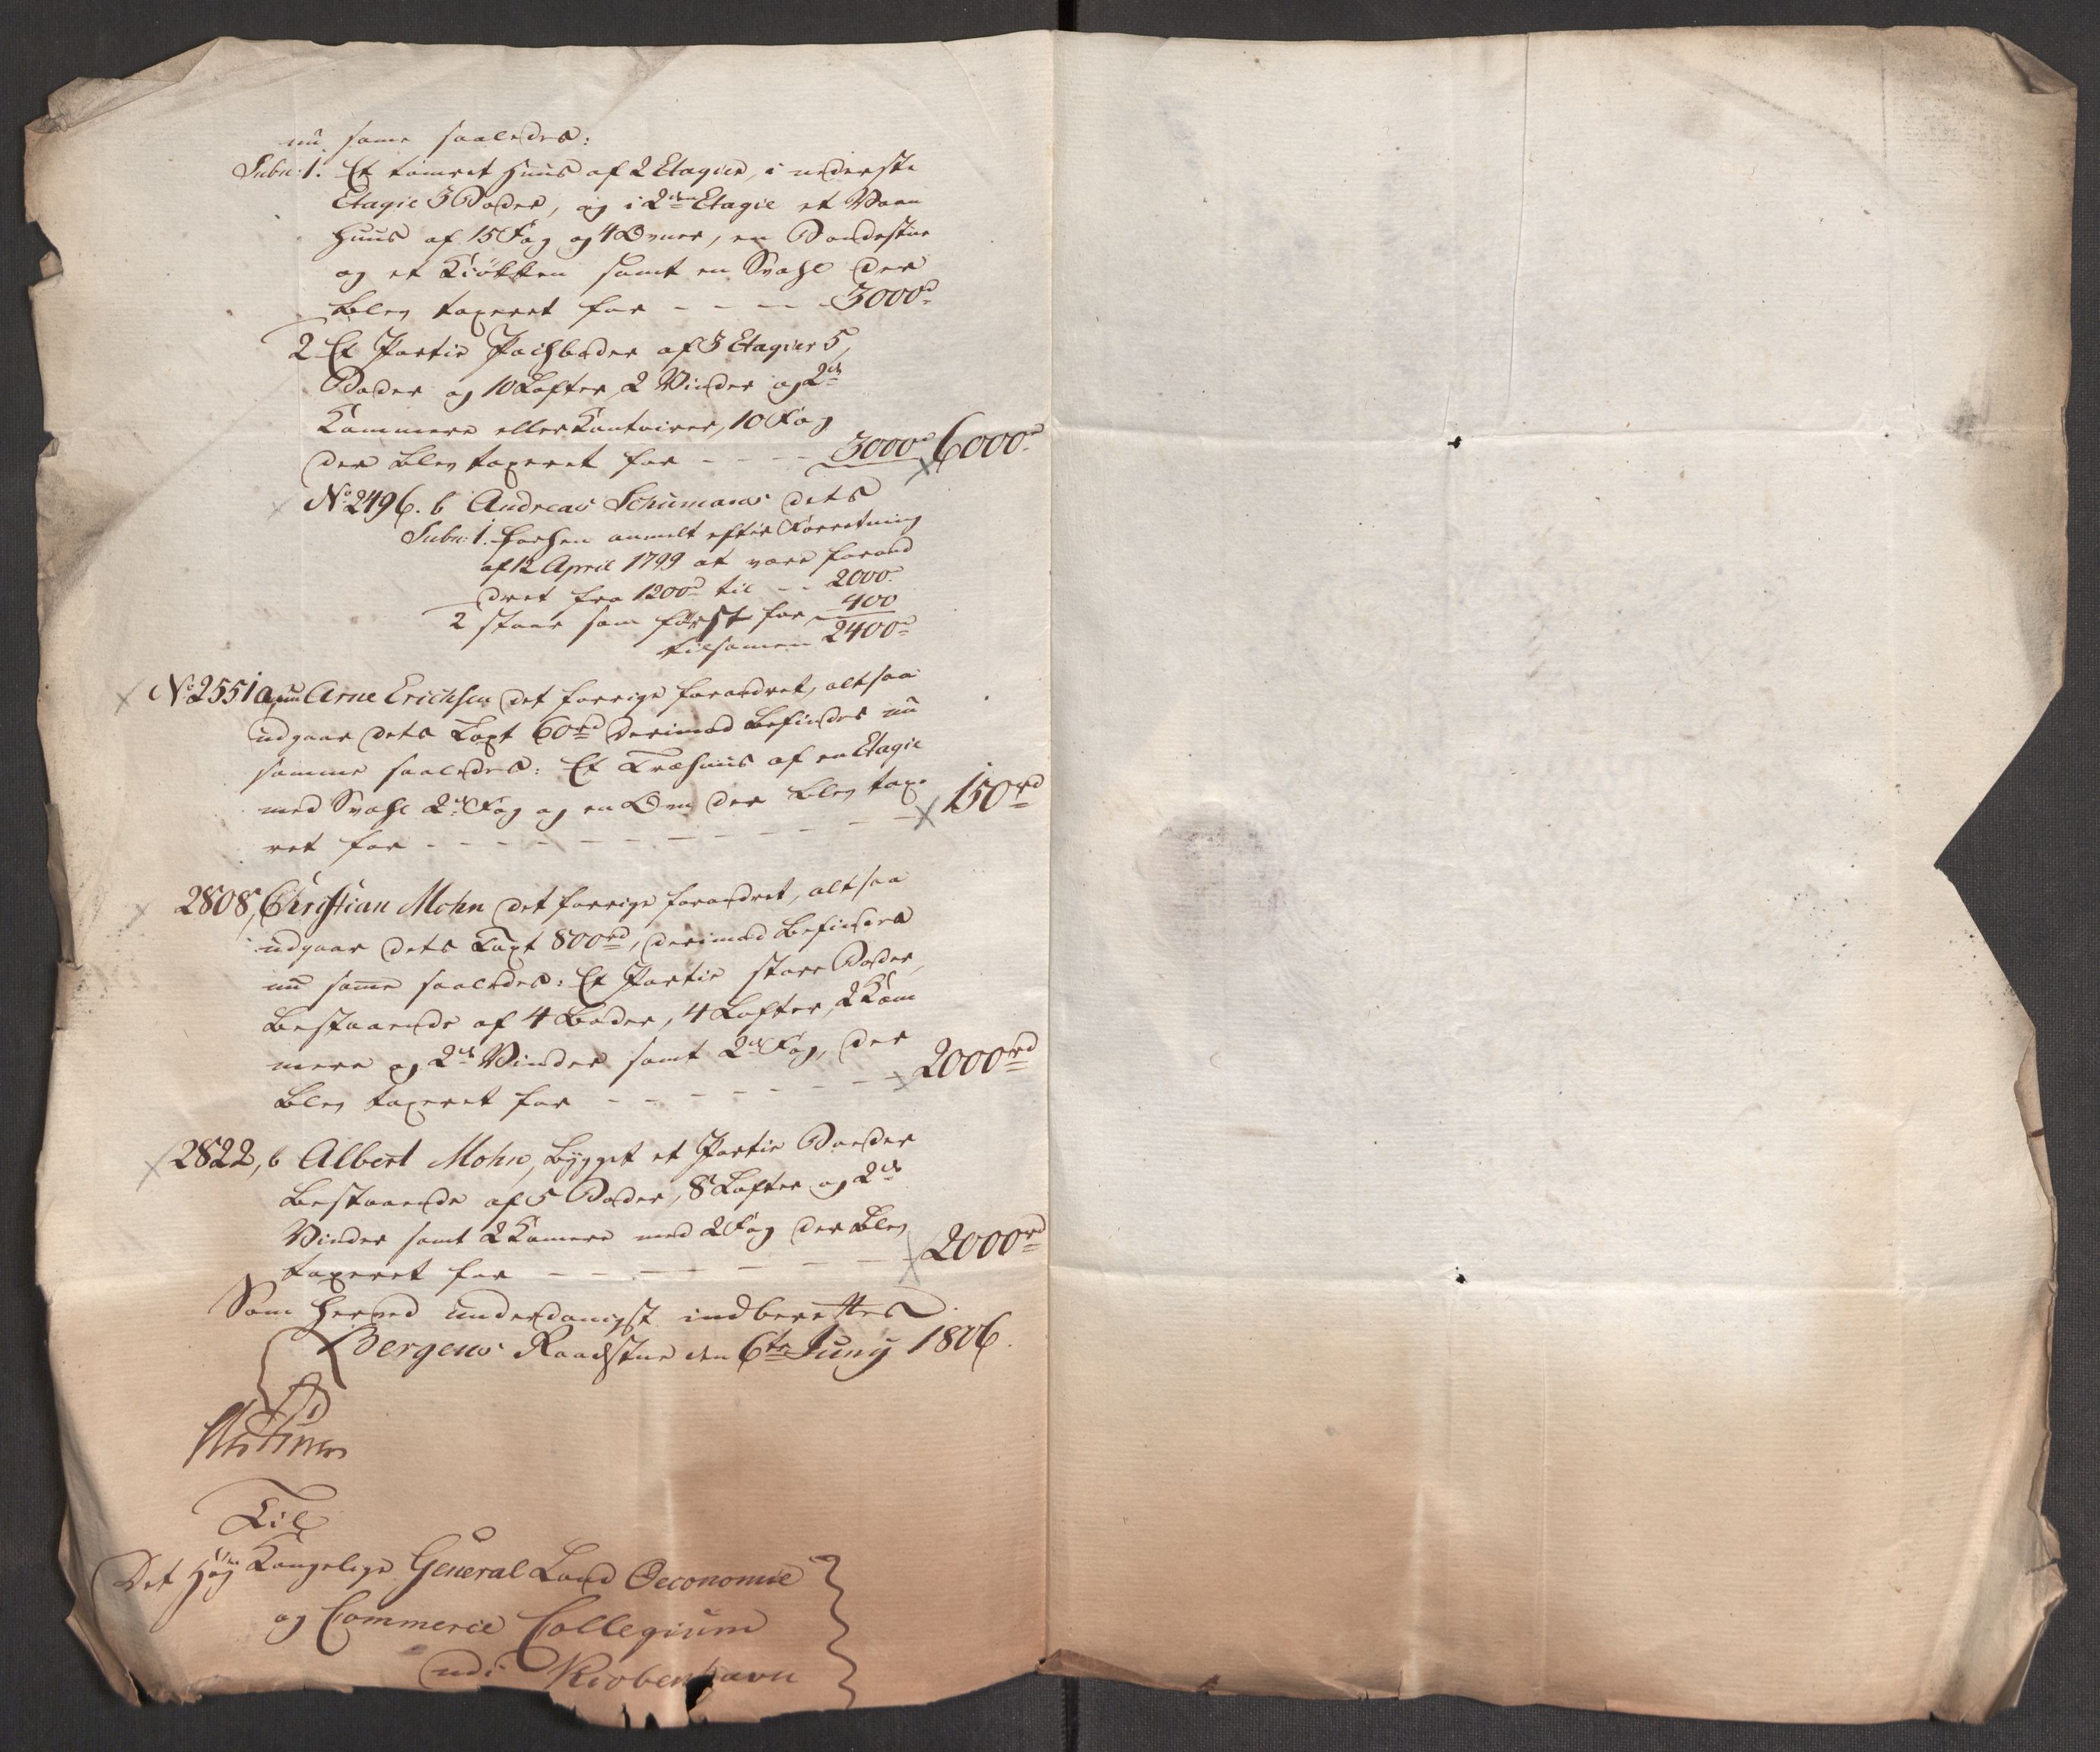 nu same saaledes:
Subn: 1. Et tømret Huus af 2 Etagier, i nederste
Etagie 3 Boder, og i 2den Etagie et Vaan
Huus af 15 Fag og 4 Ovner, en Bondestue
og et Kiökken samt en Svahl der
blev taxeret for - - - - 3000rd
2 Et Partie Pachboder af 3 Etagier 5
Boder og 10 Lofter 2 Vinder og 2de
Kammere eller Kontoirer, 10 Fag
der blev taxeret for - - - - 3000rd 6000rd
No 2496. b Andreas Schumans dets
Subn: 1. forhen anmelt efter Forretning
af 12 April 1799 at være forand
dret fra 1200rd til - - 2000rd
2 staar som först for 400
tilsamen 2400rd
No 2551 a, nu Arne Erichsen det forrige forandret, altsaa
udgaar dets Taxt 60rd derimod befindes nu
samme saaledes: Et Træhuus af en Etagie
med Svahl 2de Fag og en Ovn der blev taxe
ret for - - - - - - - - - 150rd
2808, Christian Mohn det forrige forandret, altsaa
udgaar dets Taxt 800rd, derimod befindes
nu same saaledes: Et Partie store Boder,
bestaaende af 4 Boder, 4 Lofter, 2 Kam
mere og 2de Vinder samt 2de Fag, der
blev taxeret for - - - - - - 2000rd
2822, b Albert Mohn, bygget et Partie Boeder
bestaaende af 5 Boder, 8 Lofter og 2de
Vinder samt 2 Kamere med 2 Fag der blev
taxeret for - - - - - - - 2000rd
Som herved underdanigst indberettes
Bergens Raadstue den 6te Juny 1806.
Til
Det Høy Kongelige General Land Oeconomie
og Commerce Collegium
udi Kiøbenhavn